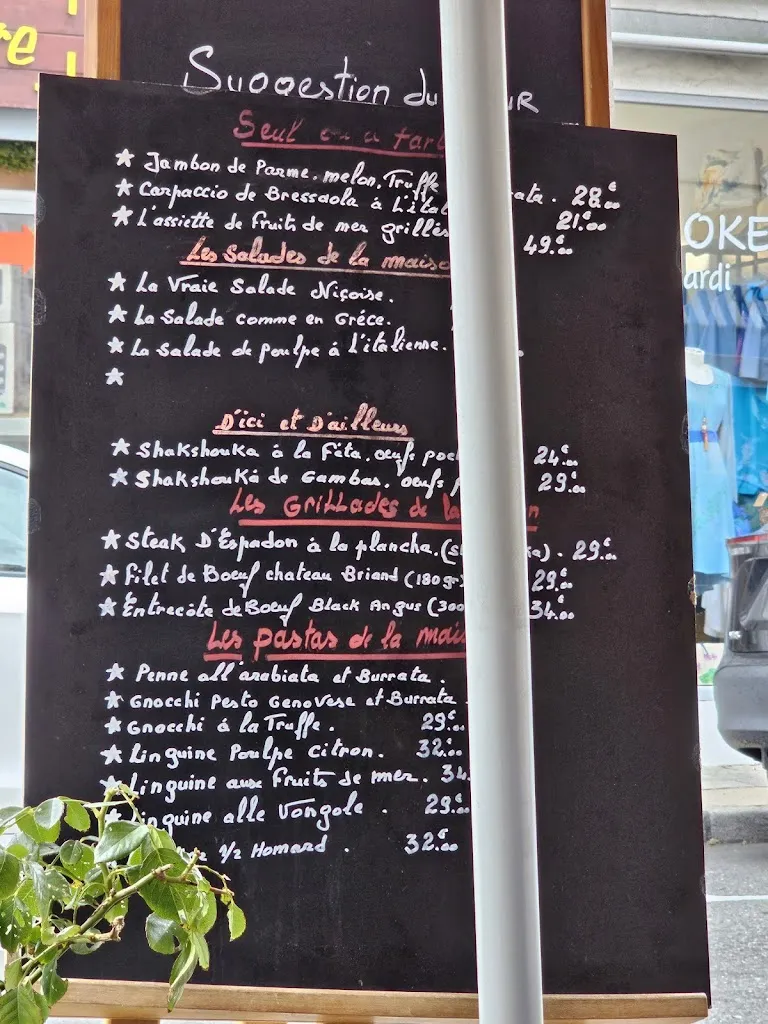 Suggestion du
Seul ou à
★ Jambon de Parme. melon. Truffe 28.€00
★ Carpaccio de Bressaola à L'ital 21.€00
★ L'assiette de fruits de mer grillés 49.€00
Les Salades de la maiso
★ La Vraie Salade Niçoise.
★ La Salade comme en Gréce.
★ La Salade de poulpe à L'italienne.
★
D'ici et D'ailleurs
★ Shakshouka à la Féta. oeufs poc 24.€00
★ Shakshouka de Gambas. oeufs 29.€00
Les Grillades de la
★ Steak D'Espadon à la plancha. 29.€00
★ Filet de Boeuf chateau Briand (180gr) 29.€00
★ Entrecôte de Boeuf Black Angus (300 34.€00
Les pastas de la mais
★ Penne all'arabiata et Burrata.
★ Gnocchi Pesto Genovese et Burrata
★ Gnocchi à la Truffe. 29.€00
★ Linguine Poulpe Citron. 32.€00
★ Linguine aux Fruits de mer. 34.
★ inguine alle Vongole. 29.€00
1/2 Homard. 32.€00
OKE
ardi
re